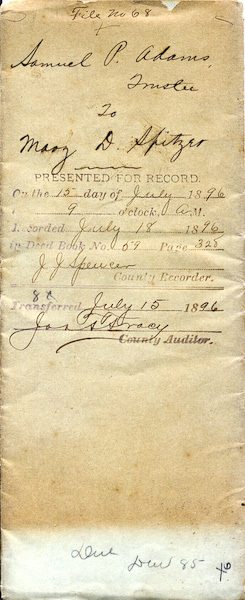 File No 68
Samuel P. Adams,
Trustee
To
Mary D. Spitzer
PRESENTED FOR RECORD.
On the 15 day of July 1896
9 o'clock, A.M.
Recorded July 18 1896
in Deed Book No. 59 Page 328
J. J. Spencer
County Recorder.
Transferred July 15 1896
Jas Tracy
County Auditor.
Deed 85